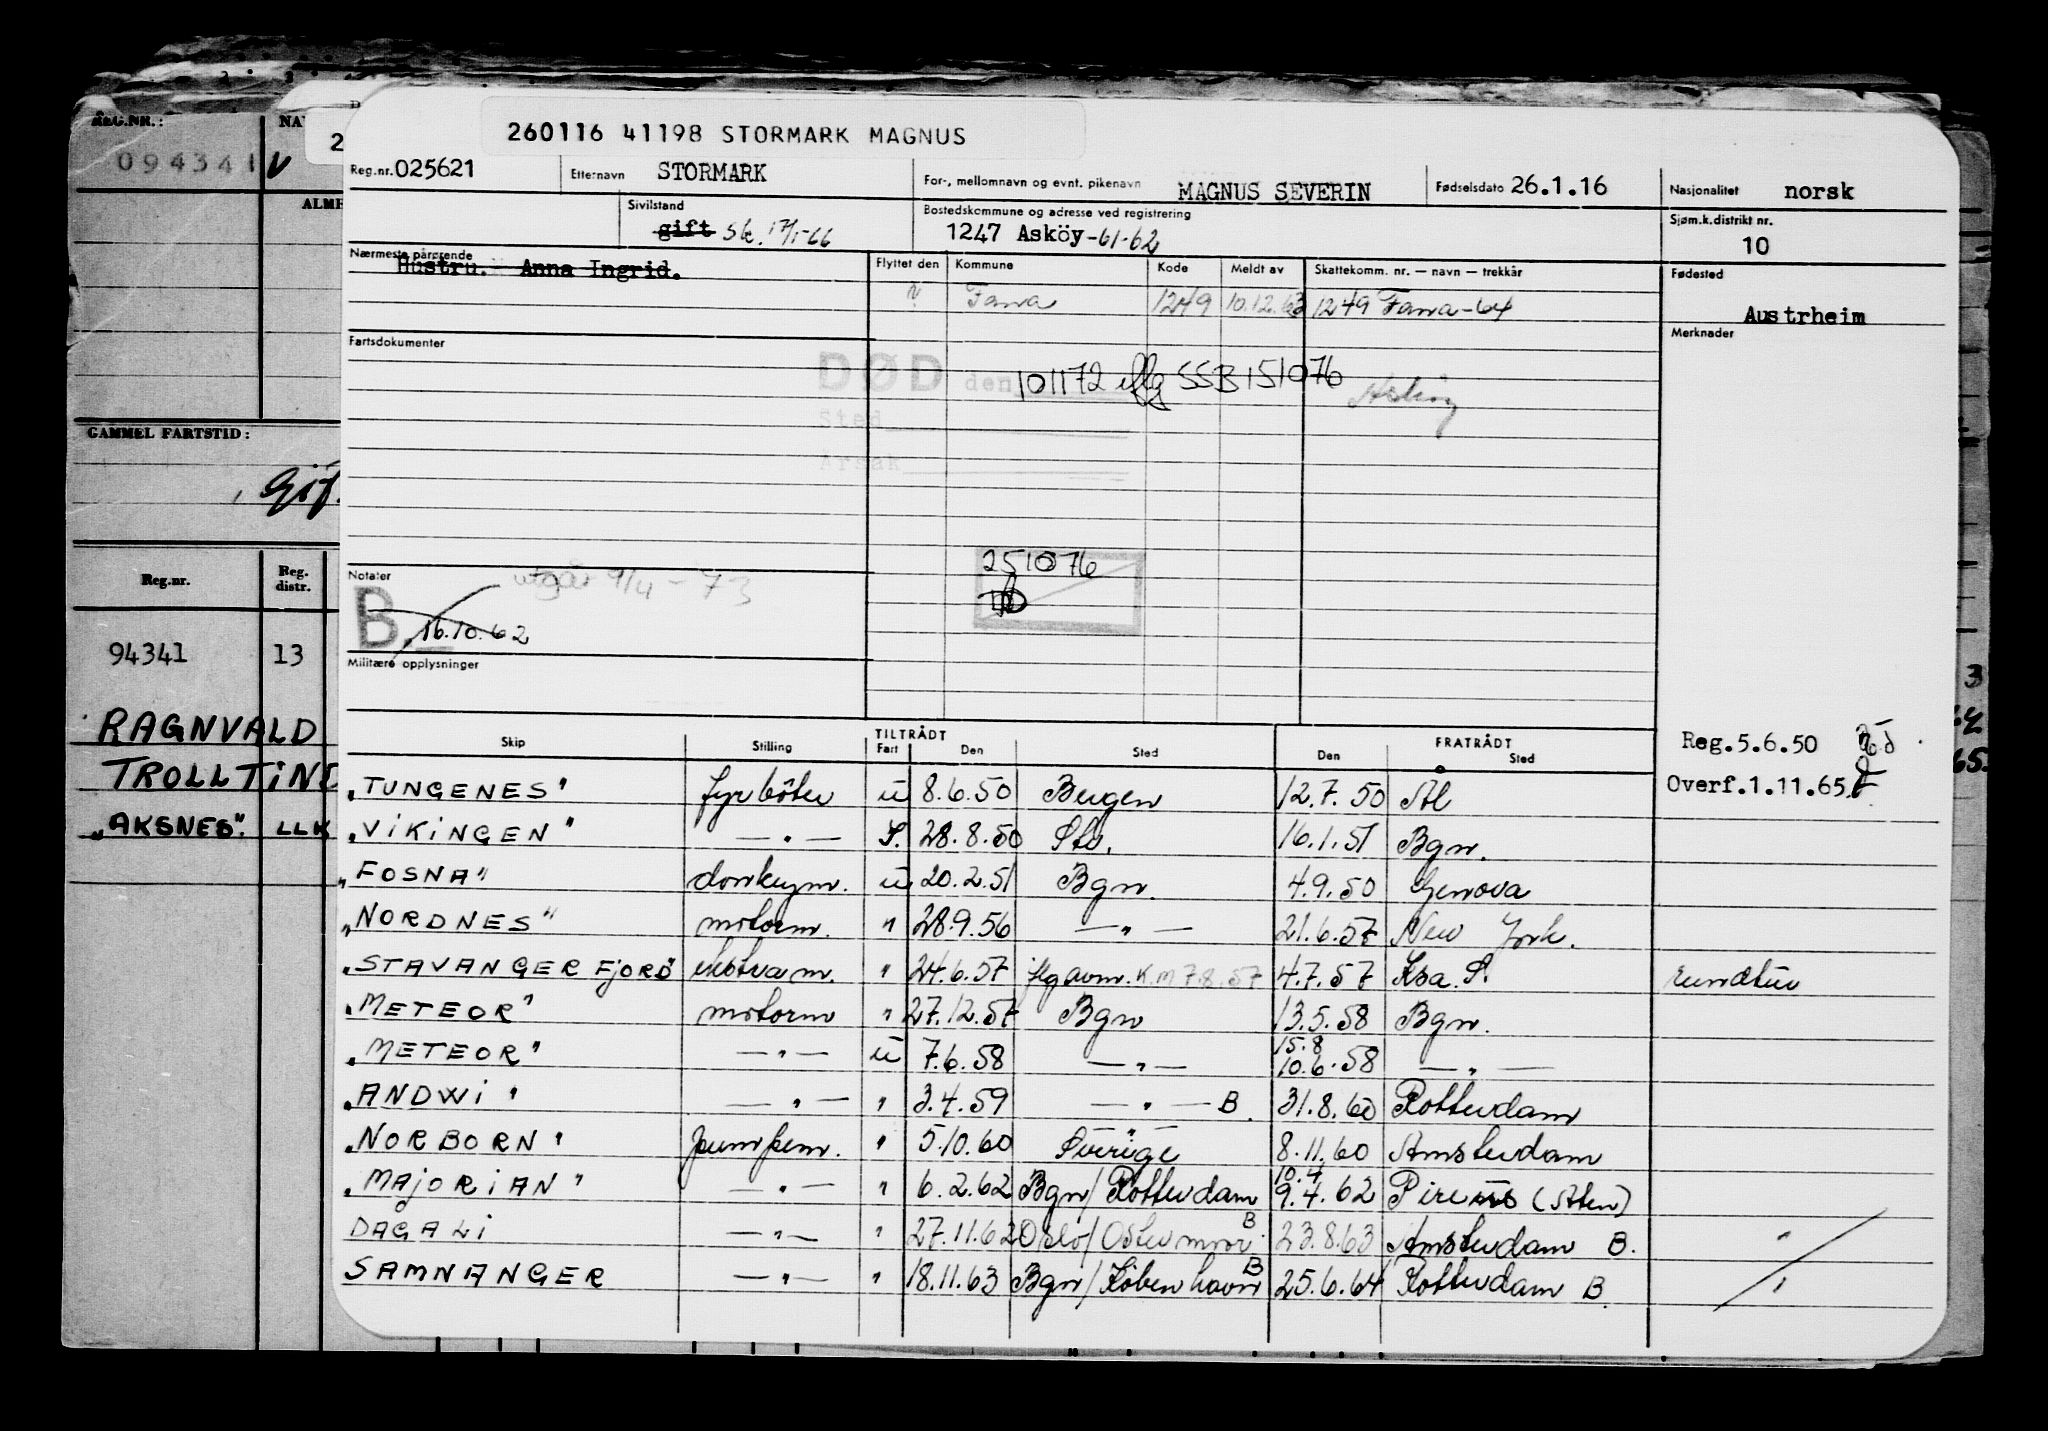 260116 41198 STORMARK MAGNUS
Reg.nr. 025621 Etternavn STORMARK For-, mellomnavn og evnt. pikenavn MAGNUS SEVERIN Fødselsdato 26.1.16 Nasjonalitet norsk
Sivilstand gift 17/1-66 Bostedskommune og adresse ved registrering 1247 Asköy-61-62 Sjøm.k.distrikt nr. 10
Nærmeste pårørende Hustru. Anna Ingrid.
Flyttet den Kommune Kode Meldt av Skattekomm. nr. — navn — trekkår Fødested
? Fana 1249 10.12.63 1249 Fana-64 Austrheim
Fartsdokumenter Merknader
DØD den 101172 iflg SSB 151076
Sted
Årsak
251076
Notater utgår 9/4-73
B. 16.10.62
Militære opplysninger
Reg.5.6.50
Overf.1.11.65.
Skip Stilling TILTRÅDT Fart Den Sted FRATRÅDT Den Sted
"TUNGENES" fyrböter u 8.6.50 Bergen 12.7.50
"VIKINGEN" —"— S. 28.8.50 16.1.51 Bgn.
"FOSNA" donkeym. u 20.2.51 Bgn. 4.9.50 Genova
"NORDNES" motorm. " 28.9.56 —"— 21.6.57 New York.
"STAVANGERFJORD ekstra m. " 24.6.57 K.M 7.8.57 4.7.57 Ksa. S. rundtur
"METEOR" motorm " 27.12.57 Bgn 13.5.58 Bgn.
"METEOR" —"— u 7.6.58 —"— 15.8 10.6.58 —"—
"ANDWI" —"— " 3.4.59 —"— B. 31.8.60 Rotterdam
"NORBORN" pumpem. " 5.10.60 Sverige 8.11.60 Amsterdam
"MAJORIAN" —"— " 6.2.62 Bgn/Rotterdam 10.4 9.4.62 Pireus (Aten)
DAGALI —"— " 27.11.62 Oslo/Ostermoor B 23.8.63 Amsterdam B. "
SAMNANGER —"— " 18.11.63 Bgn/København B 25.6.64 Rotterdam B. "
REG.NR.:
094341 V
GAMMEL FARTSTID:
Reg.nr. Reg. distr.
94341 13
RAGNVALD
TROLLTIND
"AKSNES".